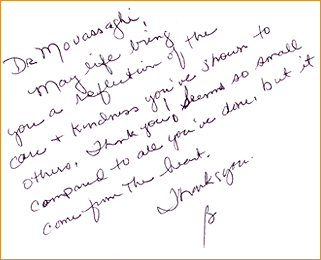 Dr. Movassaghi,
May life bring
you a reflection of the
care + kindness you've shown to
others. Thank you, seems so small
compared to all you've done, but it
come from the heart.
Thanks you.
B